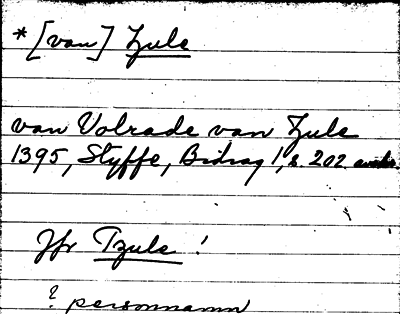 * [van] Zule
van Volrade van Zule
1395, Styffe, Bidrag 1, s. 202
Jfr Tzule !
? personnamn